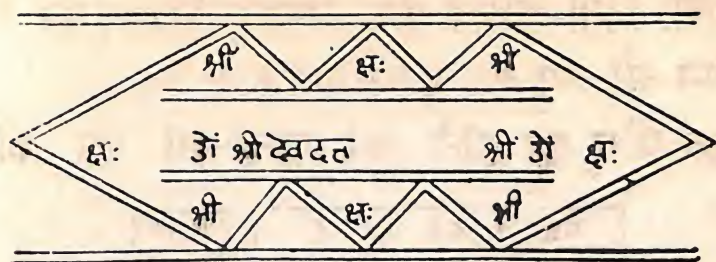 श्रीं क्षः श्रीं
क्षः ओं श्री देवदत श्रीं ओं क्षः
श्री क्षः श्री